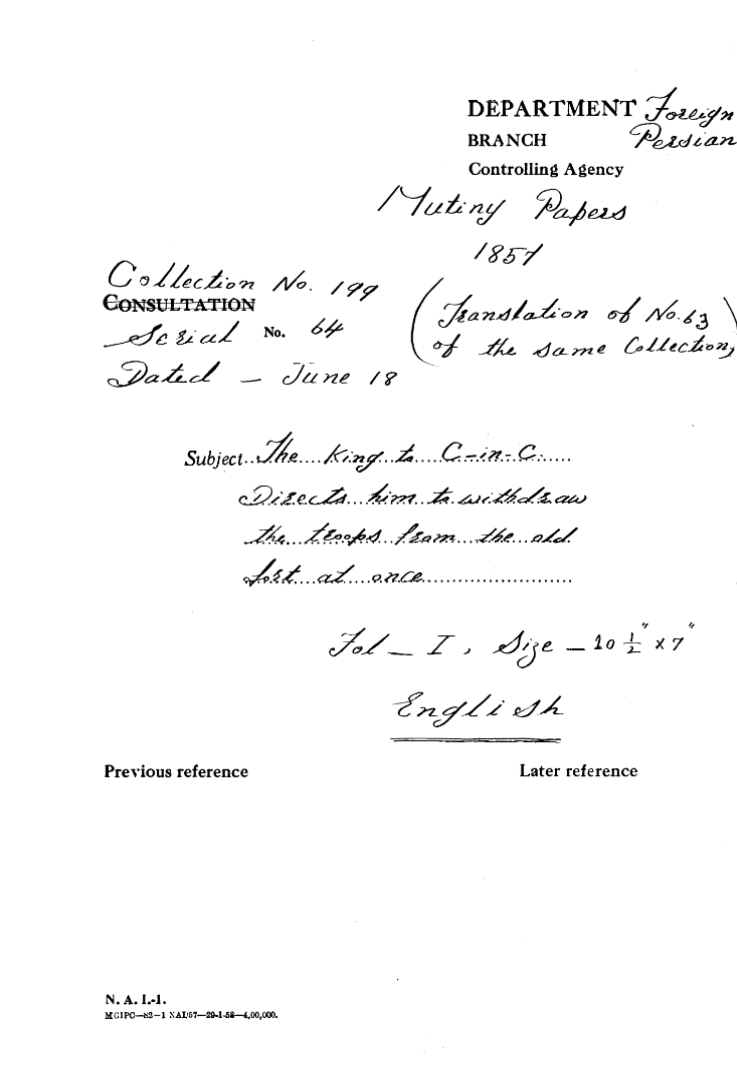 DEPARTMENT Foreign
BRANCH Persian
Controlling Agency
Mutiny Papers
1857
Collection No. 199
CONSULTATION
Serial No. 64
(Translation of No. 63
of the same Collection)
Dated — June 18
Subject..The....King..to....C-in-C......
Directs..him..to..withdraw
the..troops..from..the..old
fort..at..once..........................
Fol — I, Size — 10 1/2" x 7"
English
Previous reference Later reference
N. A. I.-1.
MGIPC—S2—1 NAI/57—29-1-58—4,00,000.